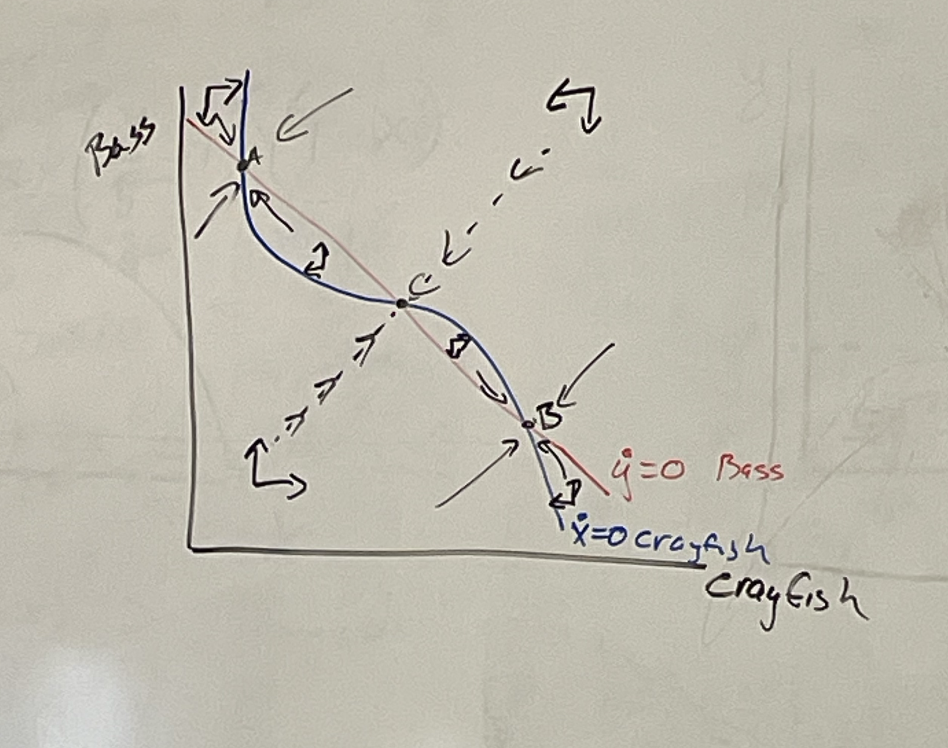 Bass
A
C
B
ẏ=0 Bass
ẋ=0 crayfish
Crayfish